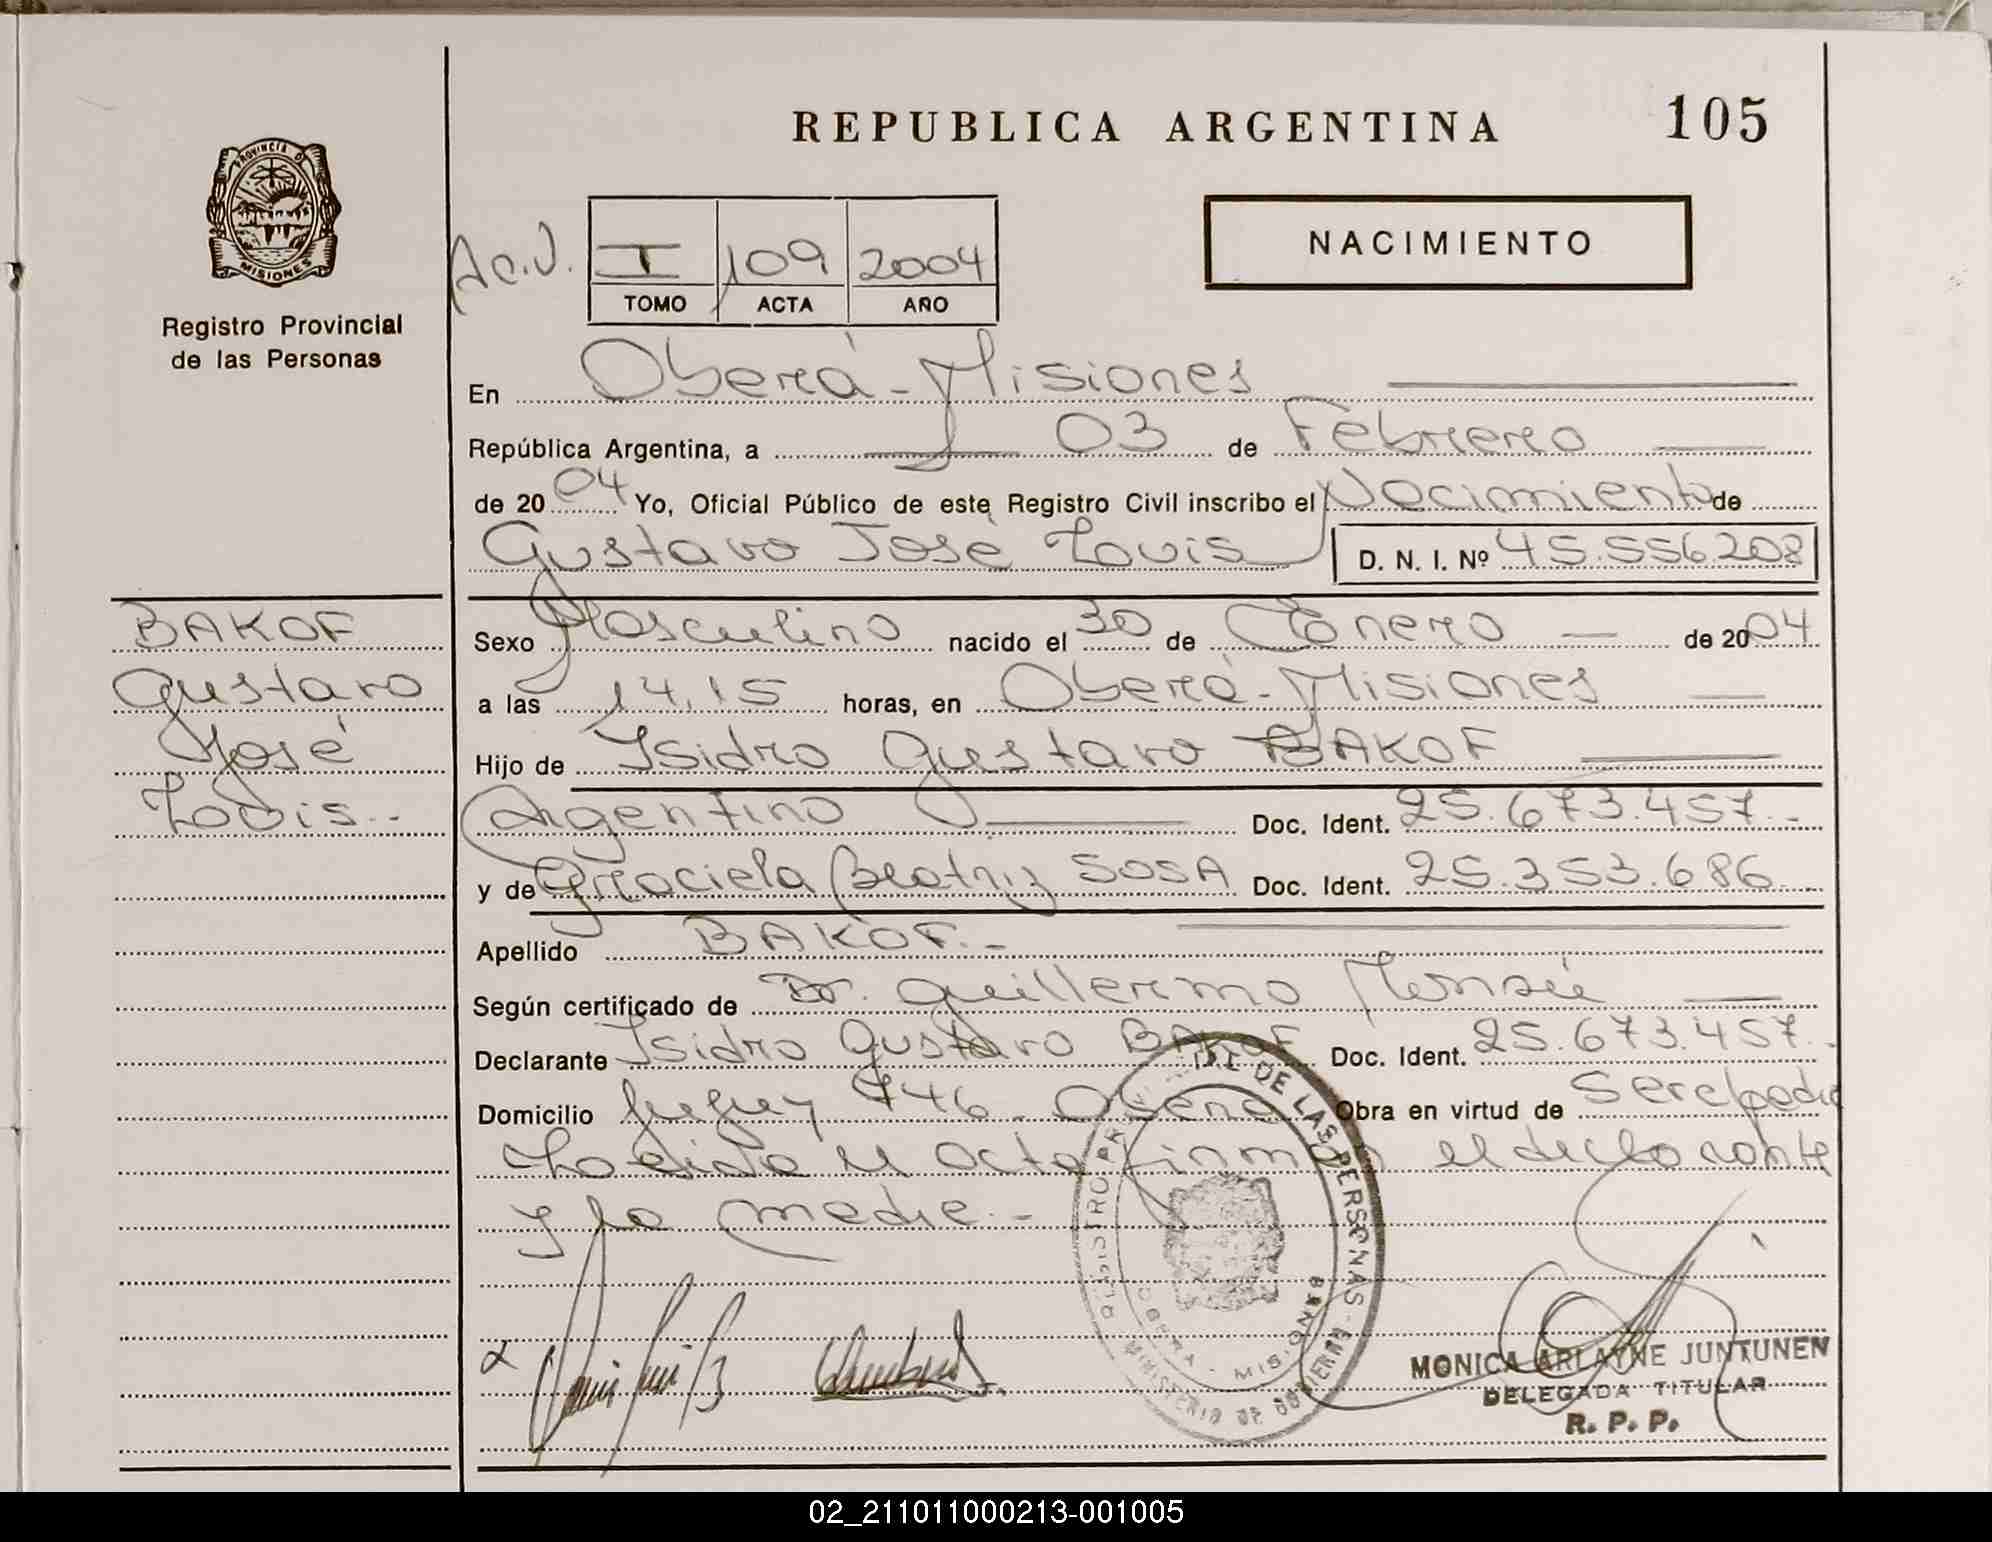 REPUBLICA ARGENTINA 105
PROVINCIA DE
MISIONES
Registro Provincial
de las Personas
Ac.J. I 109 2004
TOMO ACTA AÑO
NACIMIENTO
En Oberá - Misiones
República Argentina, a 03 de Febrero
de 2004 Yo, Oficial Público de este Registro Civil inscribo el Nacimiento de
Gustavo José Louis D. N. I. Nº 45.556.208
BAKOF
Gustavo
José
Louis.-
Sexo Masculino nacido el 30 de Enero de 2004
a las 14,15 horas, en Oberá - Misiones
Hijo de Isidro Gustavo BAKOF
Argentino Doc. Ident. 25.673.457.-
y de Graciela Beatriz SOSA Doc. Ident. 25.353.686.-
Apellido BAKOF.-
Según certificado de Dr. Guillermo
Declarante Isidro Gustavo BAKOF Doc. Ident. 25.673.457.-
Domicilio Jujuy 746 - Oberá Obra en virtud de
Leida el acta firman el declarante
y la madre.-
DE LAS PERSONAS
MINISTERIO DE GOBIERNO
OBERA - MISIONES
MONICA ARLAYNE JUNTUNEN
DELEGADA TITULAR
R. P. P.
02_211011000213-001005